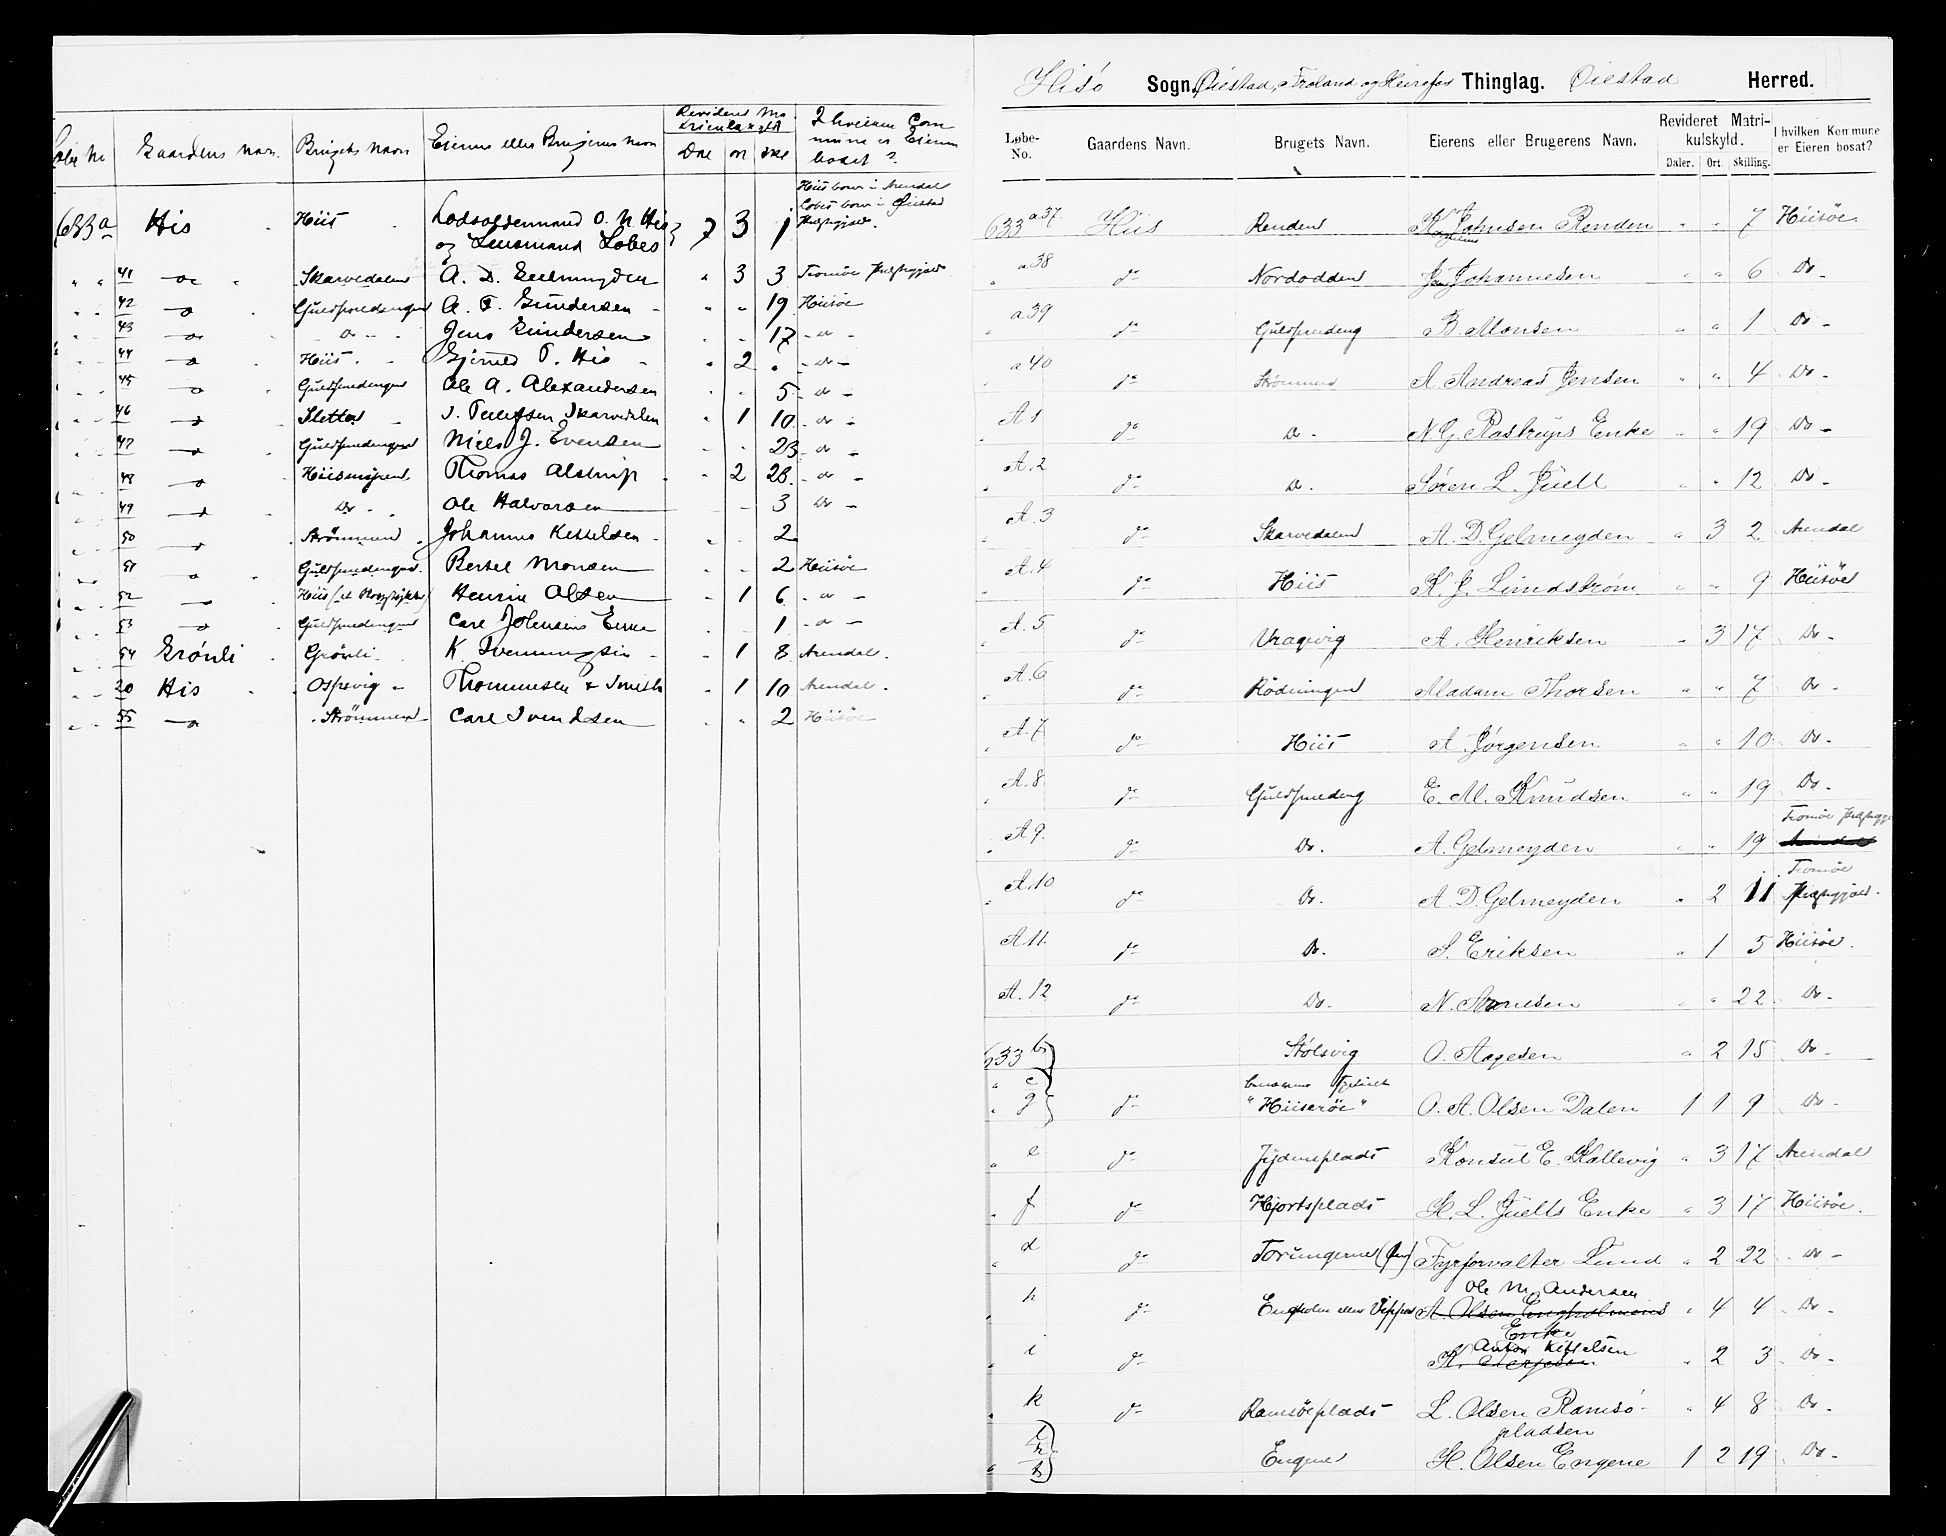 Løbe Nr Gaardens Navn. Brugets Navn Eierens eller Brugerens Navn Revideret Matriculskyld I hvilken Commune er Eieren bosat?
Dal ort skl
Hiis boer i Arendal
Lobes boer i Øiestad
Præstegjæld.
633a His Hiis Lodsoldermand O. N. His 7 3 1
og Lensmand Lobes
" " 41 do Skarvedalen A. D. Gelmeyden " 3 3 Tromøe Præstegjæld
" " 42 do Guldsmedengen A. T. Gundersen " " 19 Hiisøe
" " 43 do do Jens Gundersen " " 17 do
" " 44 do Hiis T. His " 2 " do
" " 45 do Guldsmedengen Ole A. Alexandersen " " 5 do
" " 46 do Sletten Skarvedalen " 1 10 do
" " 47 do Guldsmedengen Niels J. Evensen " " 23 do
" " 48 do Thomas Alstrup " 2 23 do
" " 49 do Do Ole Halvorsen " " 3 Do
" " 50 do Strømmen Johannes Kittelsen " " 2
" " 51 do Guldsmedengen Bertel Monsen " " 2 Hiisøe
" " 52 do Hiis Henrik Olsen " 1 6 do
" " 53 do Guldsmedengen Carl Johnsens Enke " " 1 do
" " 54 Grönli Grönli K. Svenningsen " 1 8 Arendal.
" " 20 His Ospevig Thommesen & Smith " 1 10 Arendal.
" " 55 do Strömmen Carl Svendsen " " 2 Hiisøe
Hisö Sogn, Øiestad, Froland og Thinglag. Øiestad Herred.
Løbe-No. Gaardens Navn. Brugets Navn. Eierens eller Brugerens Navn. Revideret Matrikulskyld. I hvilken Kommune er Eieren bosat?
Daler. Ort. Skilling.
633 a 37. Hiis Renden Johnsen Renden " " 7 Hiisöe.
" a 38 do Nordodden Johannesen " " 6 Do
" a 39 do Guldsmedeng B. Monsen " " 1 Do
" a 40 do Strømmen A. Andreas Jensen " " 4 Do
A 1 do Do N. G. Rostrups Enke " " 19 Do
A. 2 do Do. Sören L. Juell " " 12 Do
A. 3 do Skarvedalen A. D. Gelmeyden " 3 2 Arendal
A. 4 do Hiis K. J. Lundstrøm " " 9 Hiisöe
A. 5 do Vragvig A. Henriksen " 3 17 Do
A. 6 do Rödningen Madam Thorsen " " 7 Do
A. 7 do Hiis A. Jörgensen " " 10 Do
A. 8 do Guldsmedeng E. M. Knudsen " " 19 Do
Tromöe Præstegj.
A 9. do Do. A. Gelmeyden " " 19 Arendal
Tromöe
A. 10 do Do. A. D. Gelmeyden " 2 11 Præstegjæld.
A 11. do Do. S. Eriksen " 1 5 Hiisöe.
A. 12 do Do. N. Arnesen " " 22 Do
633 b Stölsvig O. Aagesen " 2 15 Do
" c
" g do "Hiiseröe" O. A. Olsen Dalen 1 1 9 Do
" e do Jydensplads Konsul E. Kallevig " 3 17 Arendal
" f do Hjortsplads H. L. Juells Enke " 3 17 Hiisöe.
" d do Torungerne Fyrforvalter Lund " 2 22 Do
Ole M. Andersen
" h do Engholm eller Vippen A. Olsen Engholmens " 4 4 Do
Enke
Anton Kittelsen
" i do K. Terjesen " 2 3 Do
" k do Ramsöeplads L. Olsen Ramsö- " 4 8 Do
pladsen
" l Engene H. Olsen Engene 1 2 19 Do